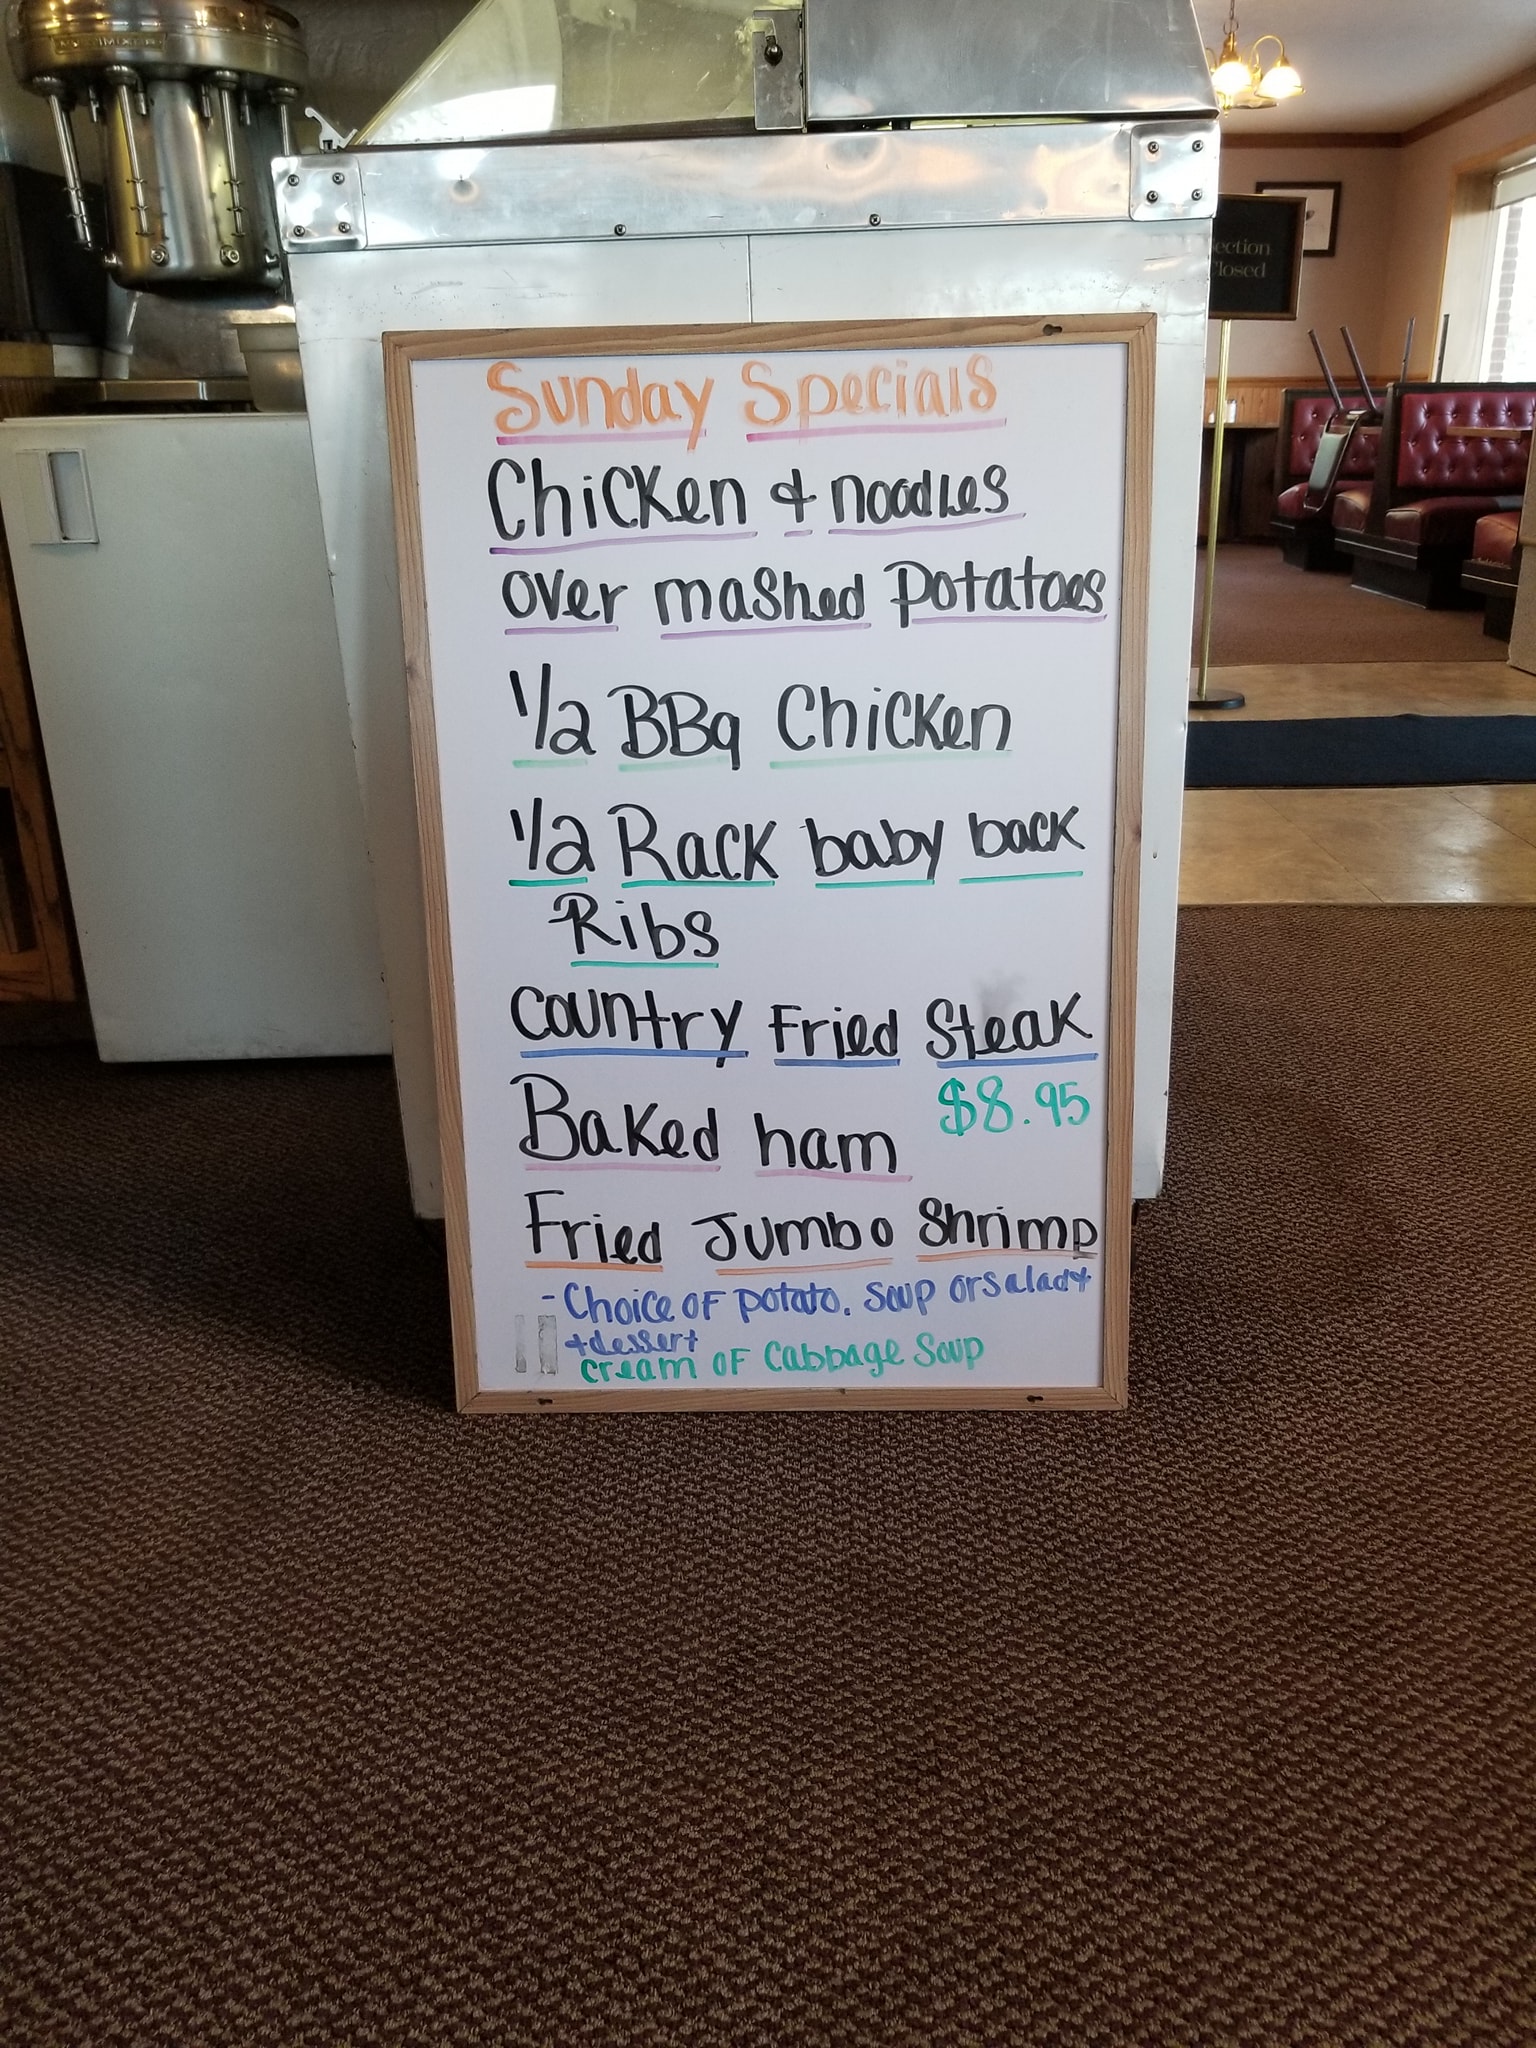 Sunday Specials
Chicken & noodles
over mashed Potatoes
1/2 BBq Chicken
1/2 Rack baby back
Ribs
Country Fried Steak
$8.95
Baked ham
Fried Jumbo Shrimp
- Choice of potato. Soup or salad &
+ dessert
cream of Cabbage Soup
ection
losed